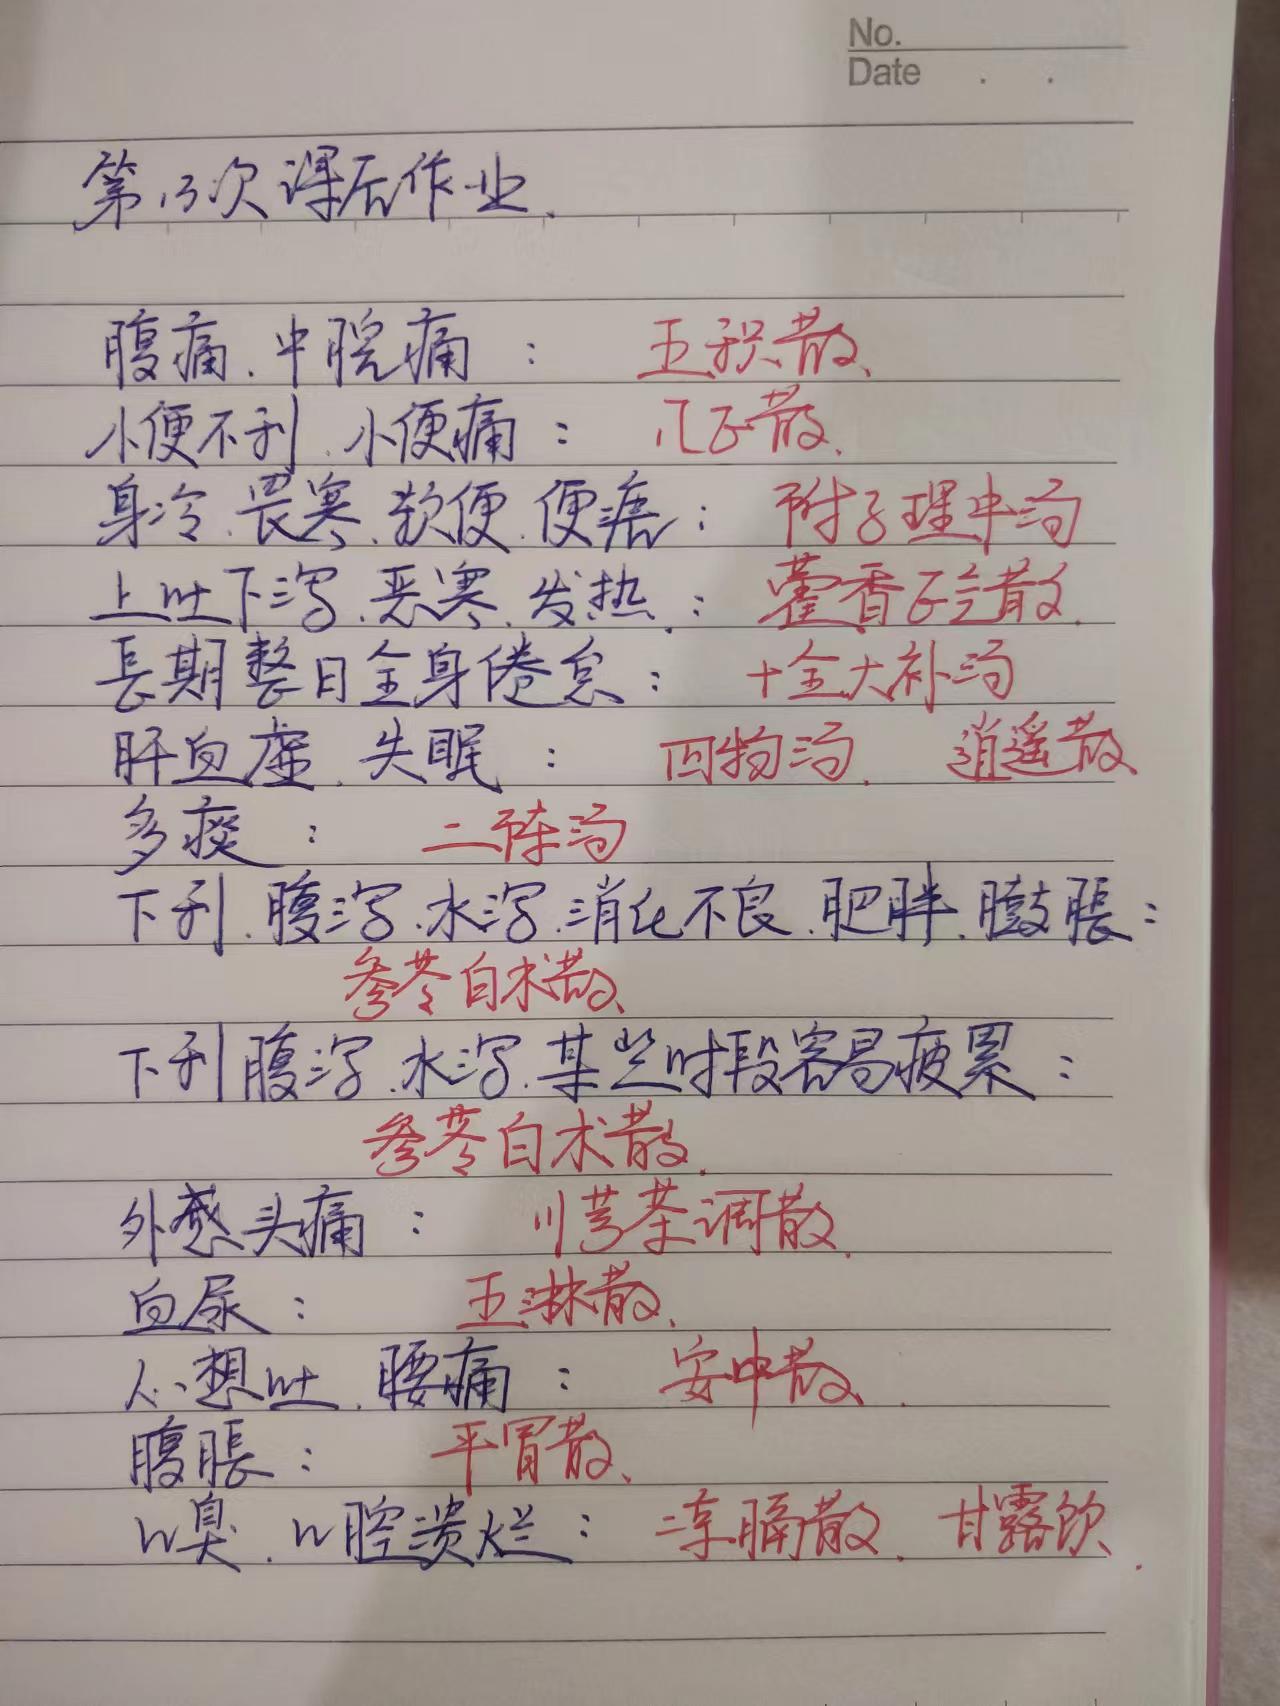 No.
Date
第13次课后作业.
腹痛.中脘痛: 五积散.
小便不利.小便痛: 八正散.
身冷.畏寒.软便.便溏: 附子理中汤
上吐下泻.恶寒.发热.: 藿香正气散.
長期整日全身倦怠: 十全大补汤
肝血虚.失眠: 四物汤. 逍遥散
多痰: 二陈汤
下利.腹泻.水泻.消化不良.肥胖.膨脹:
参苓白术散.
下利腹泻.水泻.某些时段容易疲累:
参苓白术散.
外感头痛: 川芎茶调散.
血尿: 五淋散.
心想吐.腰痛: 安中散.
腹脹: 平胃散.
口臭.口腔溃烂: 凉膈散. 甘露饮.